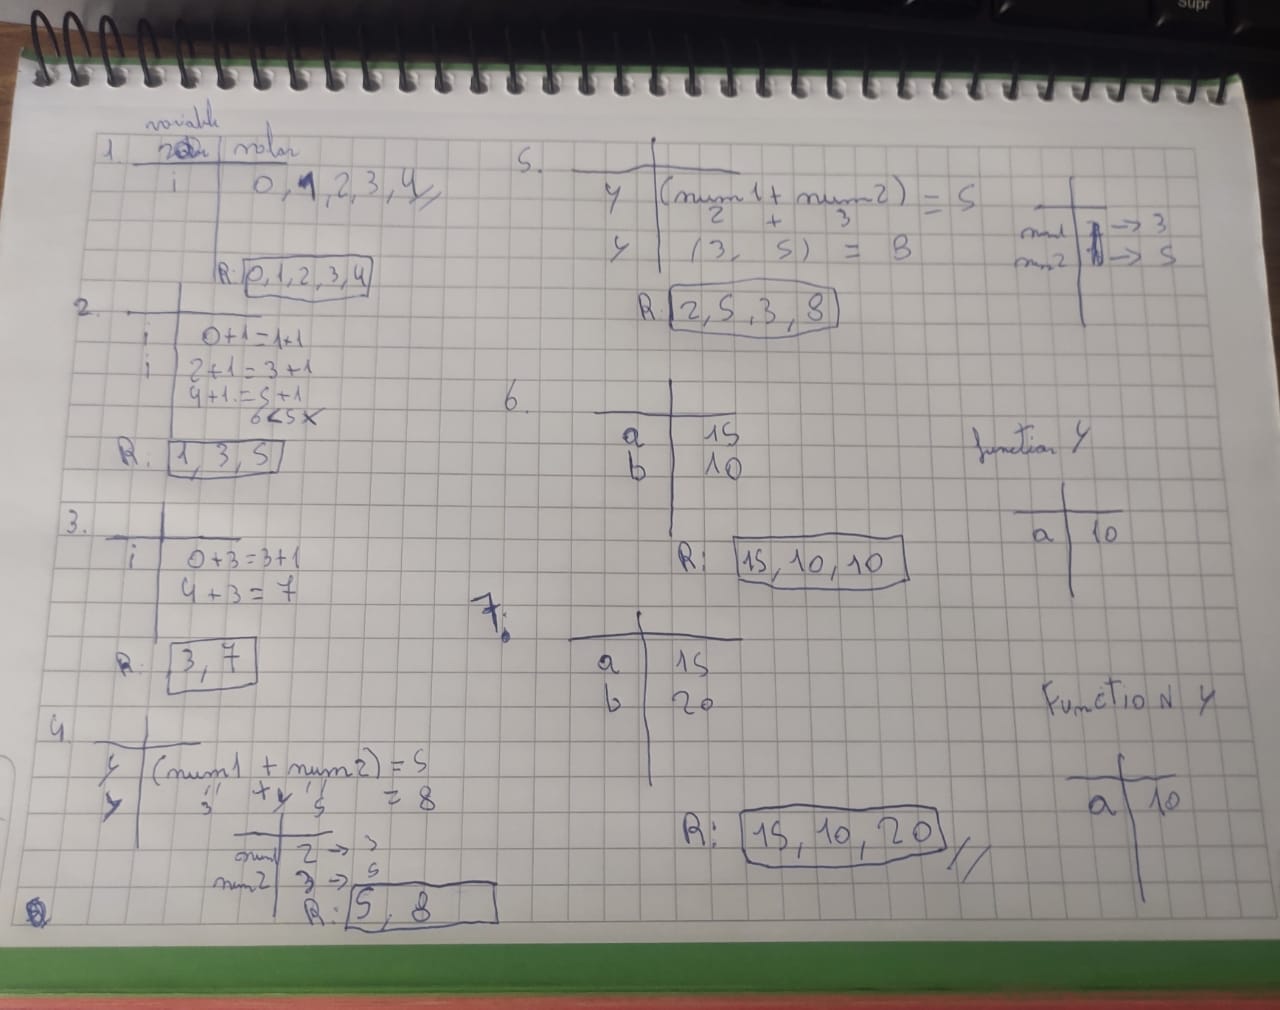 Supr
variable
1. valor
i 0, 1, 2, 3, 4
R: 0, 1, 2, 3, 4
2.
i 0+1=1+1
i 2+1=3+1
4+1=5+1
6<5 X
R: 1, 3, 5
3.
i 0+3=3+1
4+3=7
R: 3, 7
4.
y (num1 + num2) = 5
y 3 + y 5 = 8
num1 2 → 3
num2 3 → 5
R: 5, 8
5.
y (num1 + num2) = 5
2 + 3
y (3, 5) = 8
num1 → 3
num2 → 5
R: 2, 5, 3, 8
6.
a 15
b 10
R: 15, 10, 10
function y
a 10
7.
a 15
b 20
R: 15, 10, 20
FunctioN y
a 10